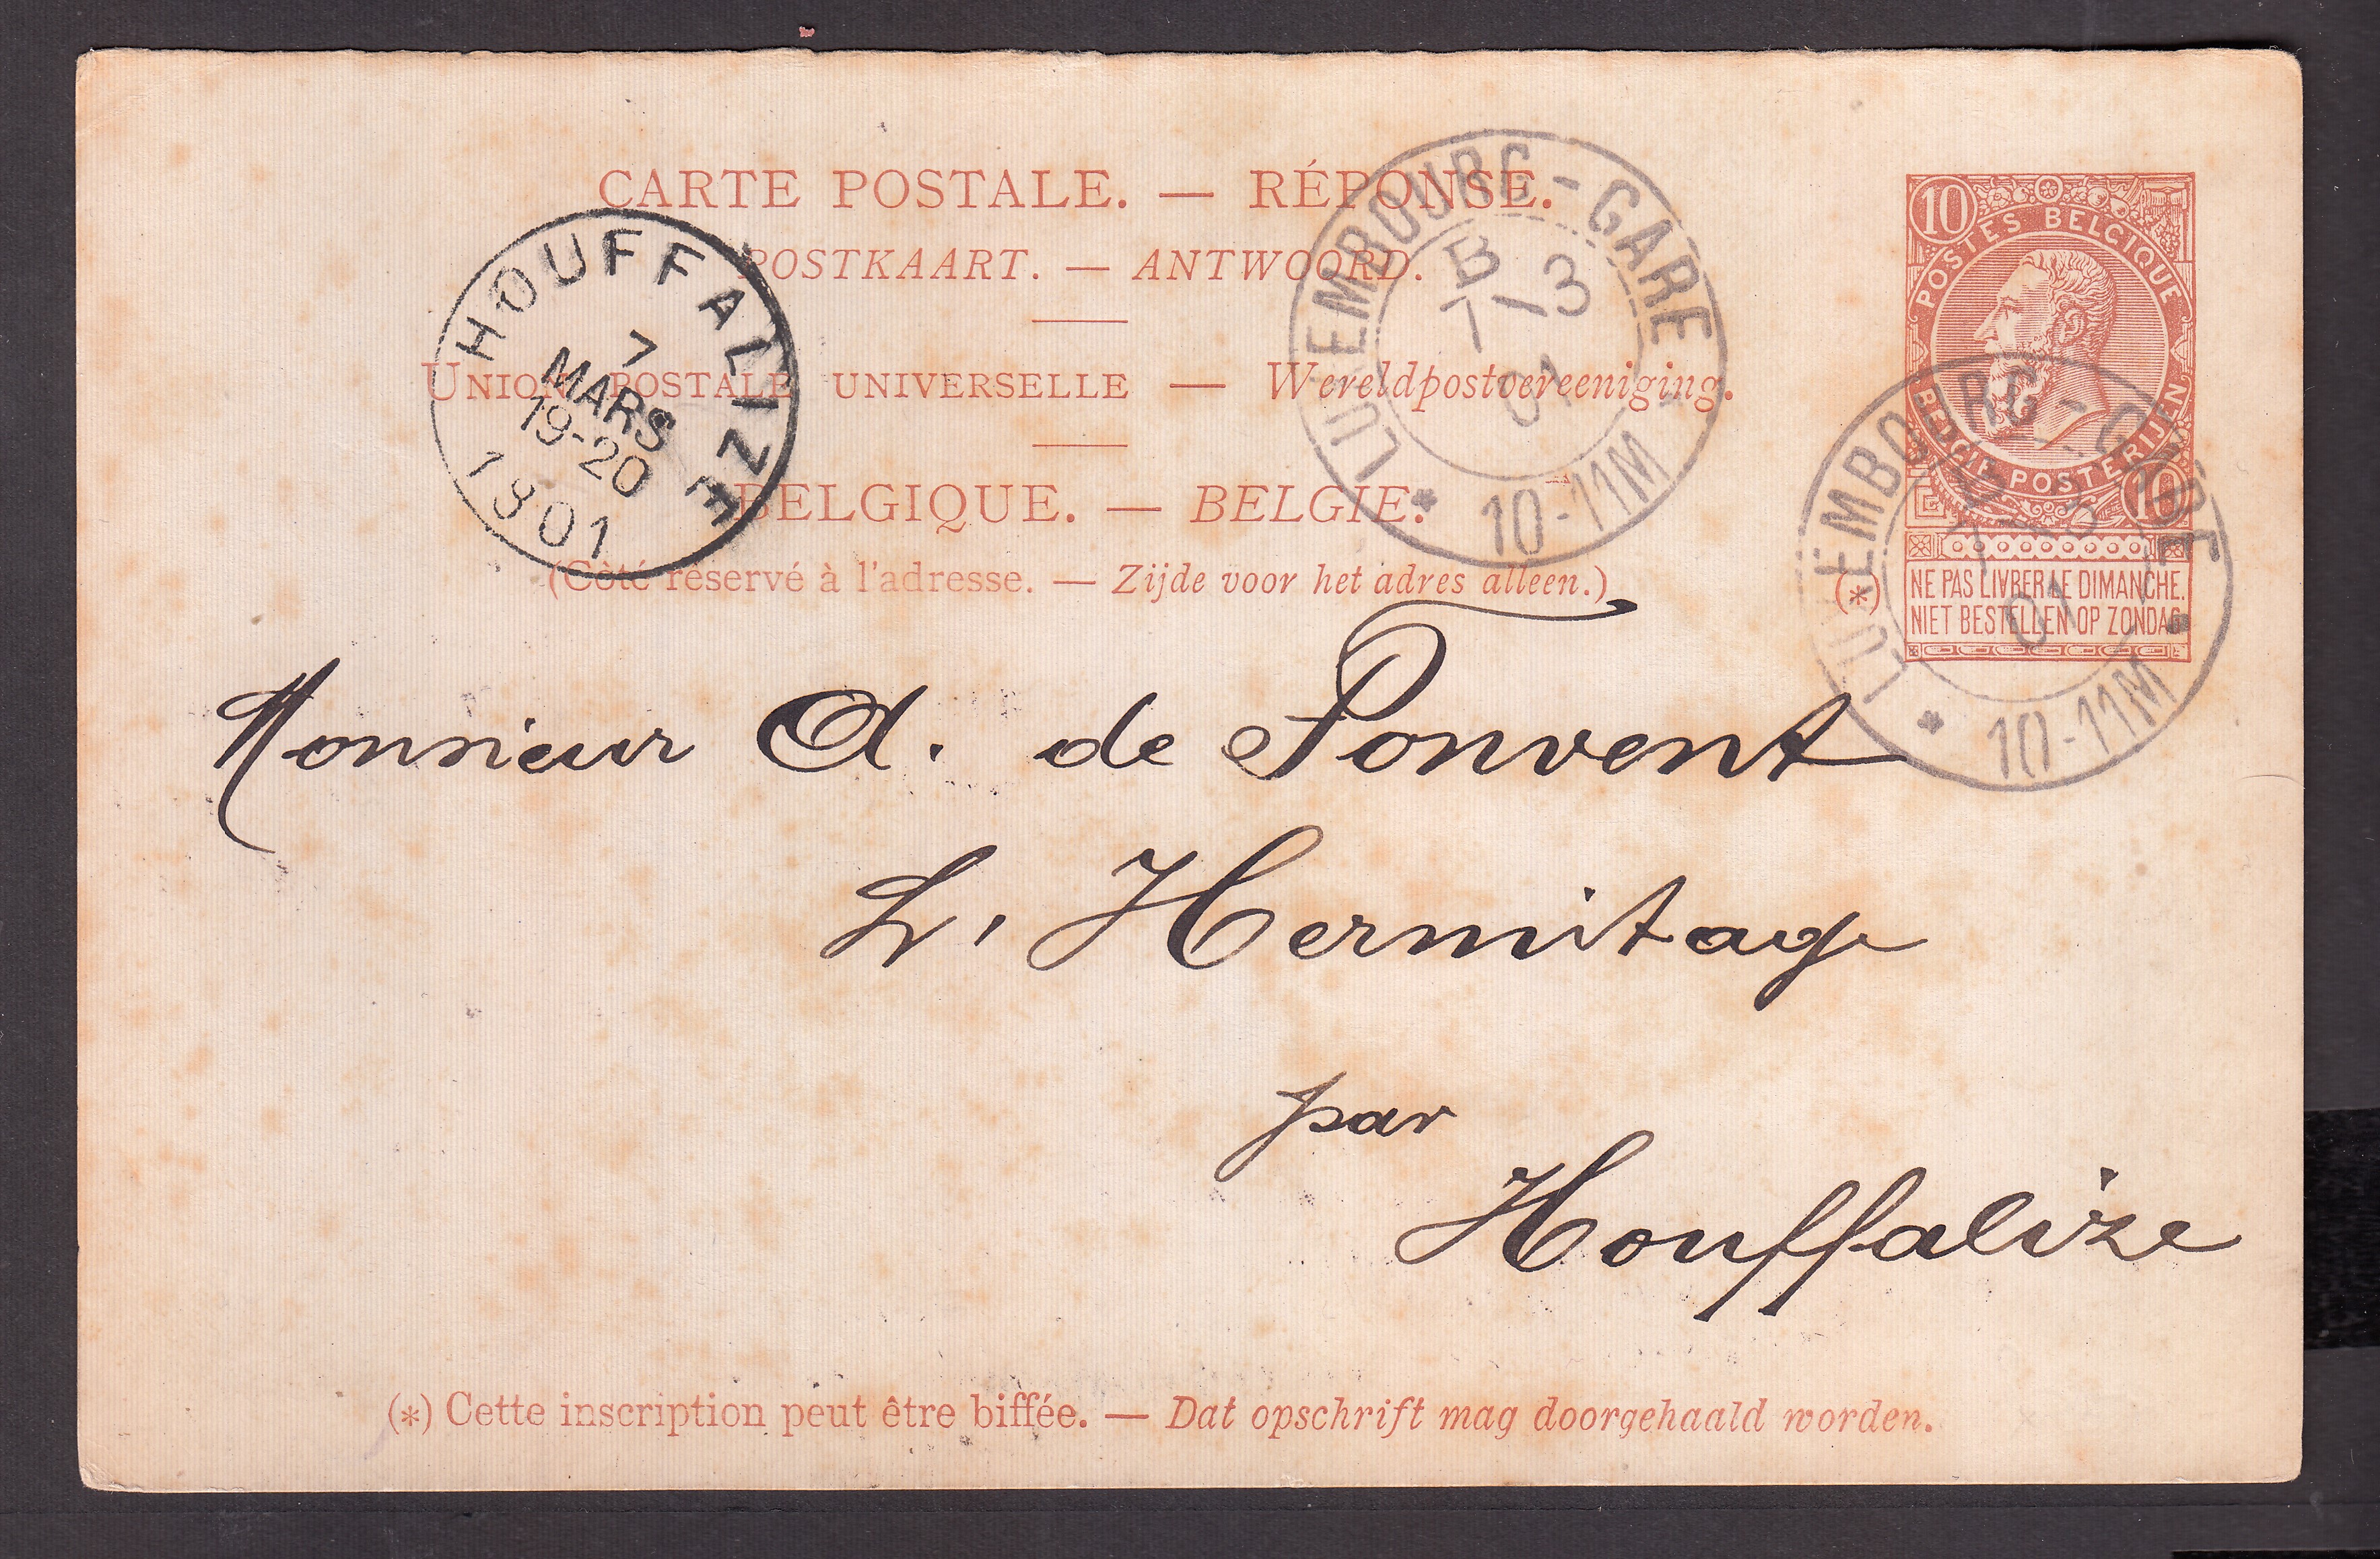 CARTE POSTALE. — RÉPONSE.
POSTKAART. — ANTWOORD.
UNION POSTALE UNIVERSELLE — Wereldpostvereeniging.
BELGIQUE. — BELGIË.
(Côté réservé à l'adresse. — Zijde voor het adres alleen.)
HOUFFALIZE
7
MARS
19-20
1901
LUXEMBOURG-GARE
B
7-3
01
10-11M
10
POSTES BELGIQUE
BELGIË POSTERIJEN
10
(*) NE PAS LIVRER LE DIMANCHE.
NIET BESTELLEN OP ZONDAG.
LUXEMBOURG-GARE
B
7-3
01
10-11M
Monsieur A. de Ponvent
L'Hermitage
par
Houffalize
(*) Cette inscription peut être biffée. — Dat opschrift mag doorgehaald worden.